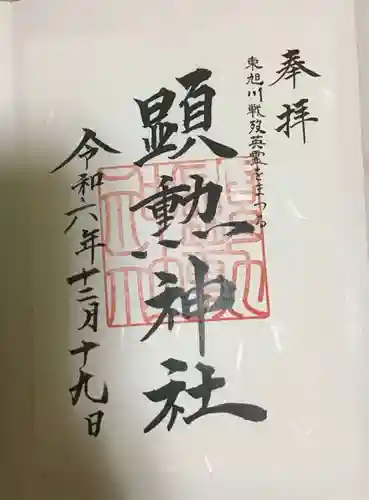 奉拝
東旭川戦歿英霊をまつる
顕勲神社
令和六年十二月十九日